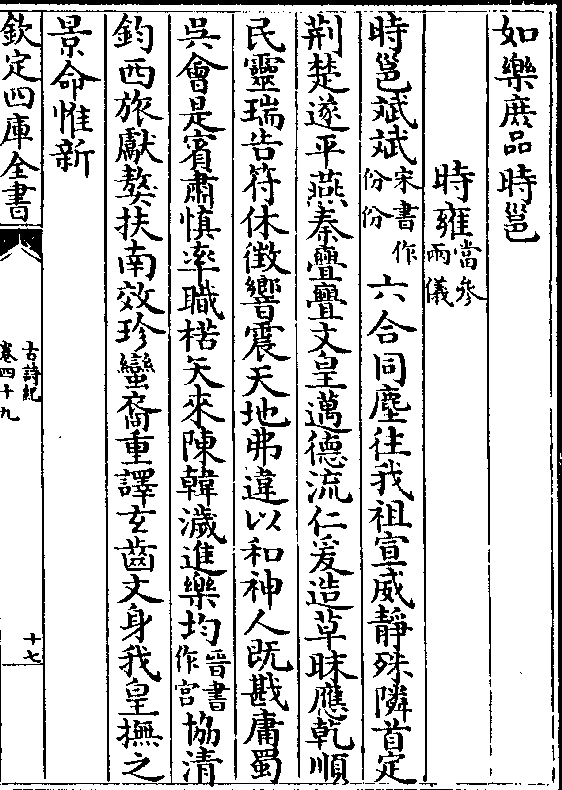 如樂庶品時邕
時雍當參兩儀
時邕斌斌宋書作份份六合同塵往我祖宣威靜殊隣首定
荆楚遂平燕秦亹亹文皇邁德流仁爰造草昧應乾順
民靈瑞告符休徵響震天地弗違以和神人既戡庸蜀
吳會是賓肅慎率職楛矢來陳韓濊進樂均晉書作宮協清
鈞西旅獻獒扶南效珍蠻裔重譯玄齒文身我皇撫之
景命惟新
欽定四庫全書
古詩紀
卷四十九
十七